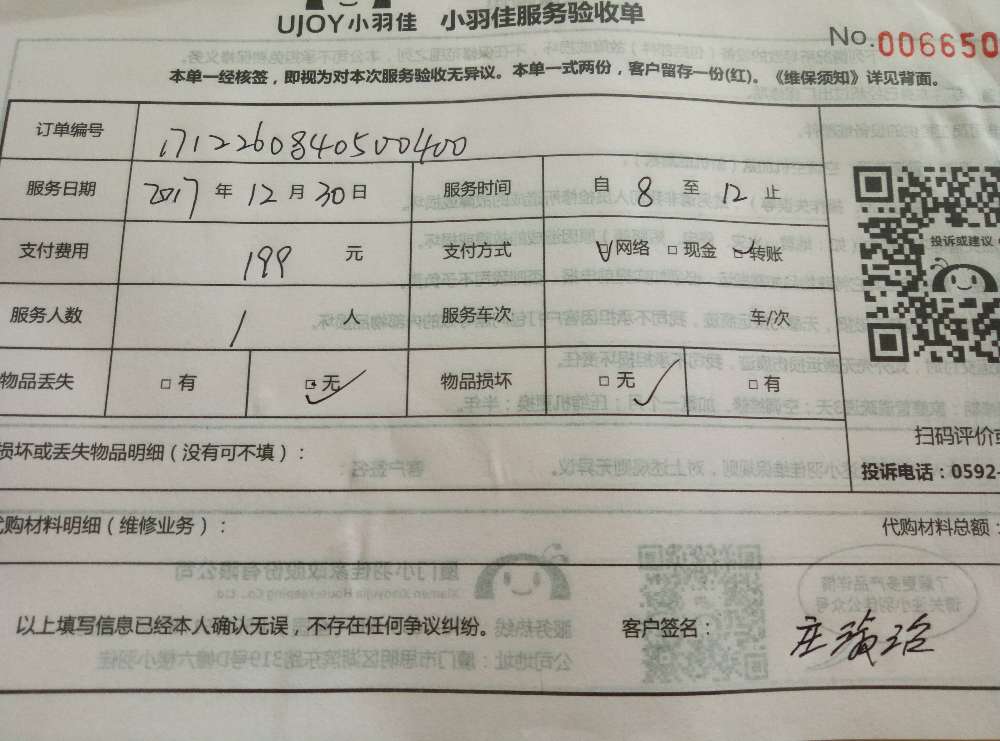 UJOY小羽佳 小羽佳服务验收单
No.006650
本单一经核签，即视为对本次服务验收无异议。本单一式两份，客户留存一份(红)。《维保须知》详见背面。
订单编号 171226084050040​0
服务日期 2017 年 12 月 30 日 服务时间 自 8 至 12 止
支付费用 199 元 支付方式 □网络 □现金 □转账
投诉或建议
服务人数 1 人 服务车次 车/次
物品丢失 □有 □无 物品损坏 □无 □有
扫码评价或
损坏或丢失物品明细（没有可不填）：
投诉电话：0592-
代购材料明细（维修业务）： 代购材料总额：
以上填写信息已经本人确认无误，不存在任何争议纠纷。 客户签名：